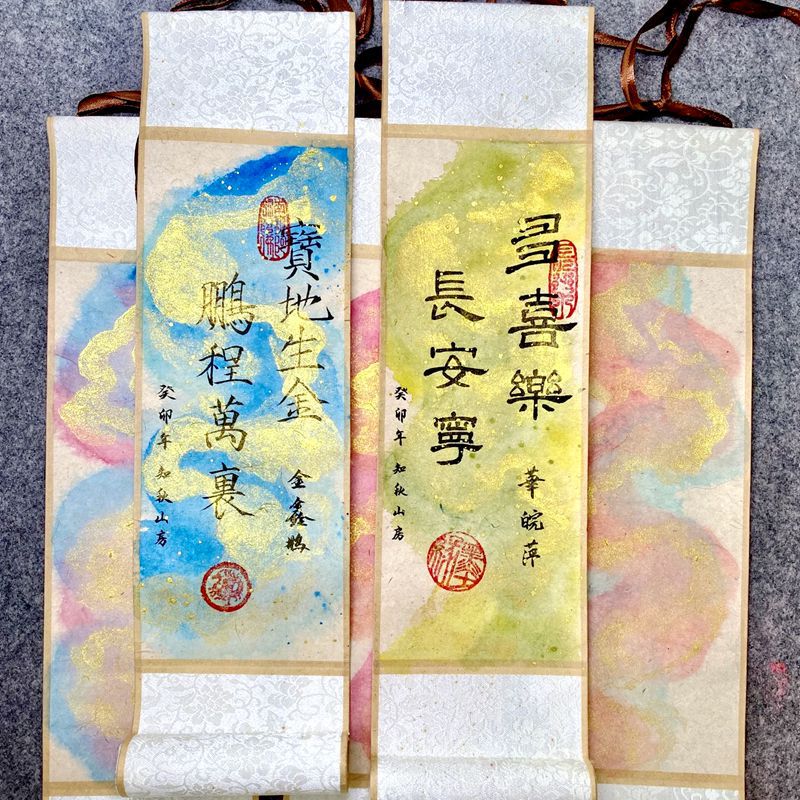 寶地生金
鵬程萬裏
金鑫鵬
癸卯年 知秋山房
多喜樂
長安寧
華皖萍
癸卯年 知秋山房